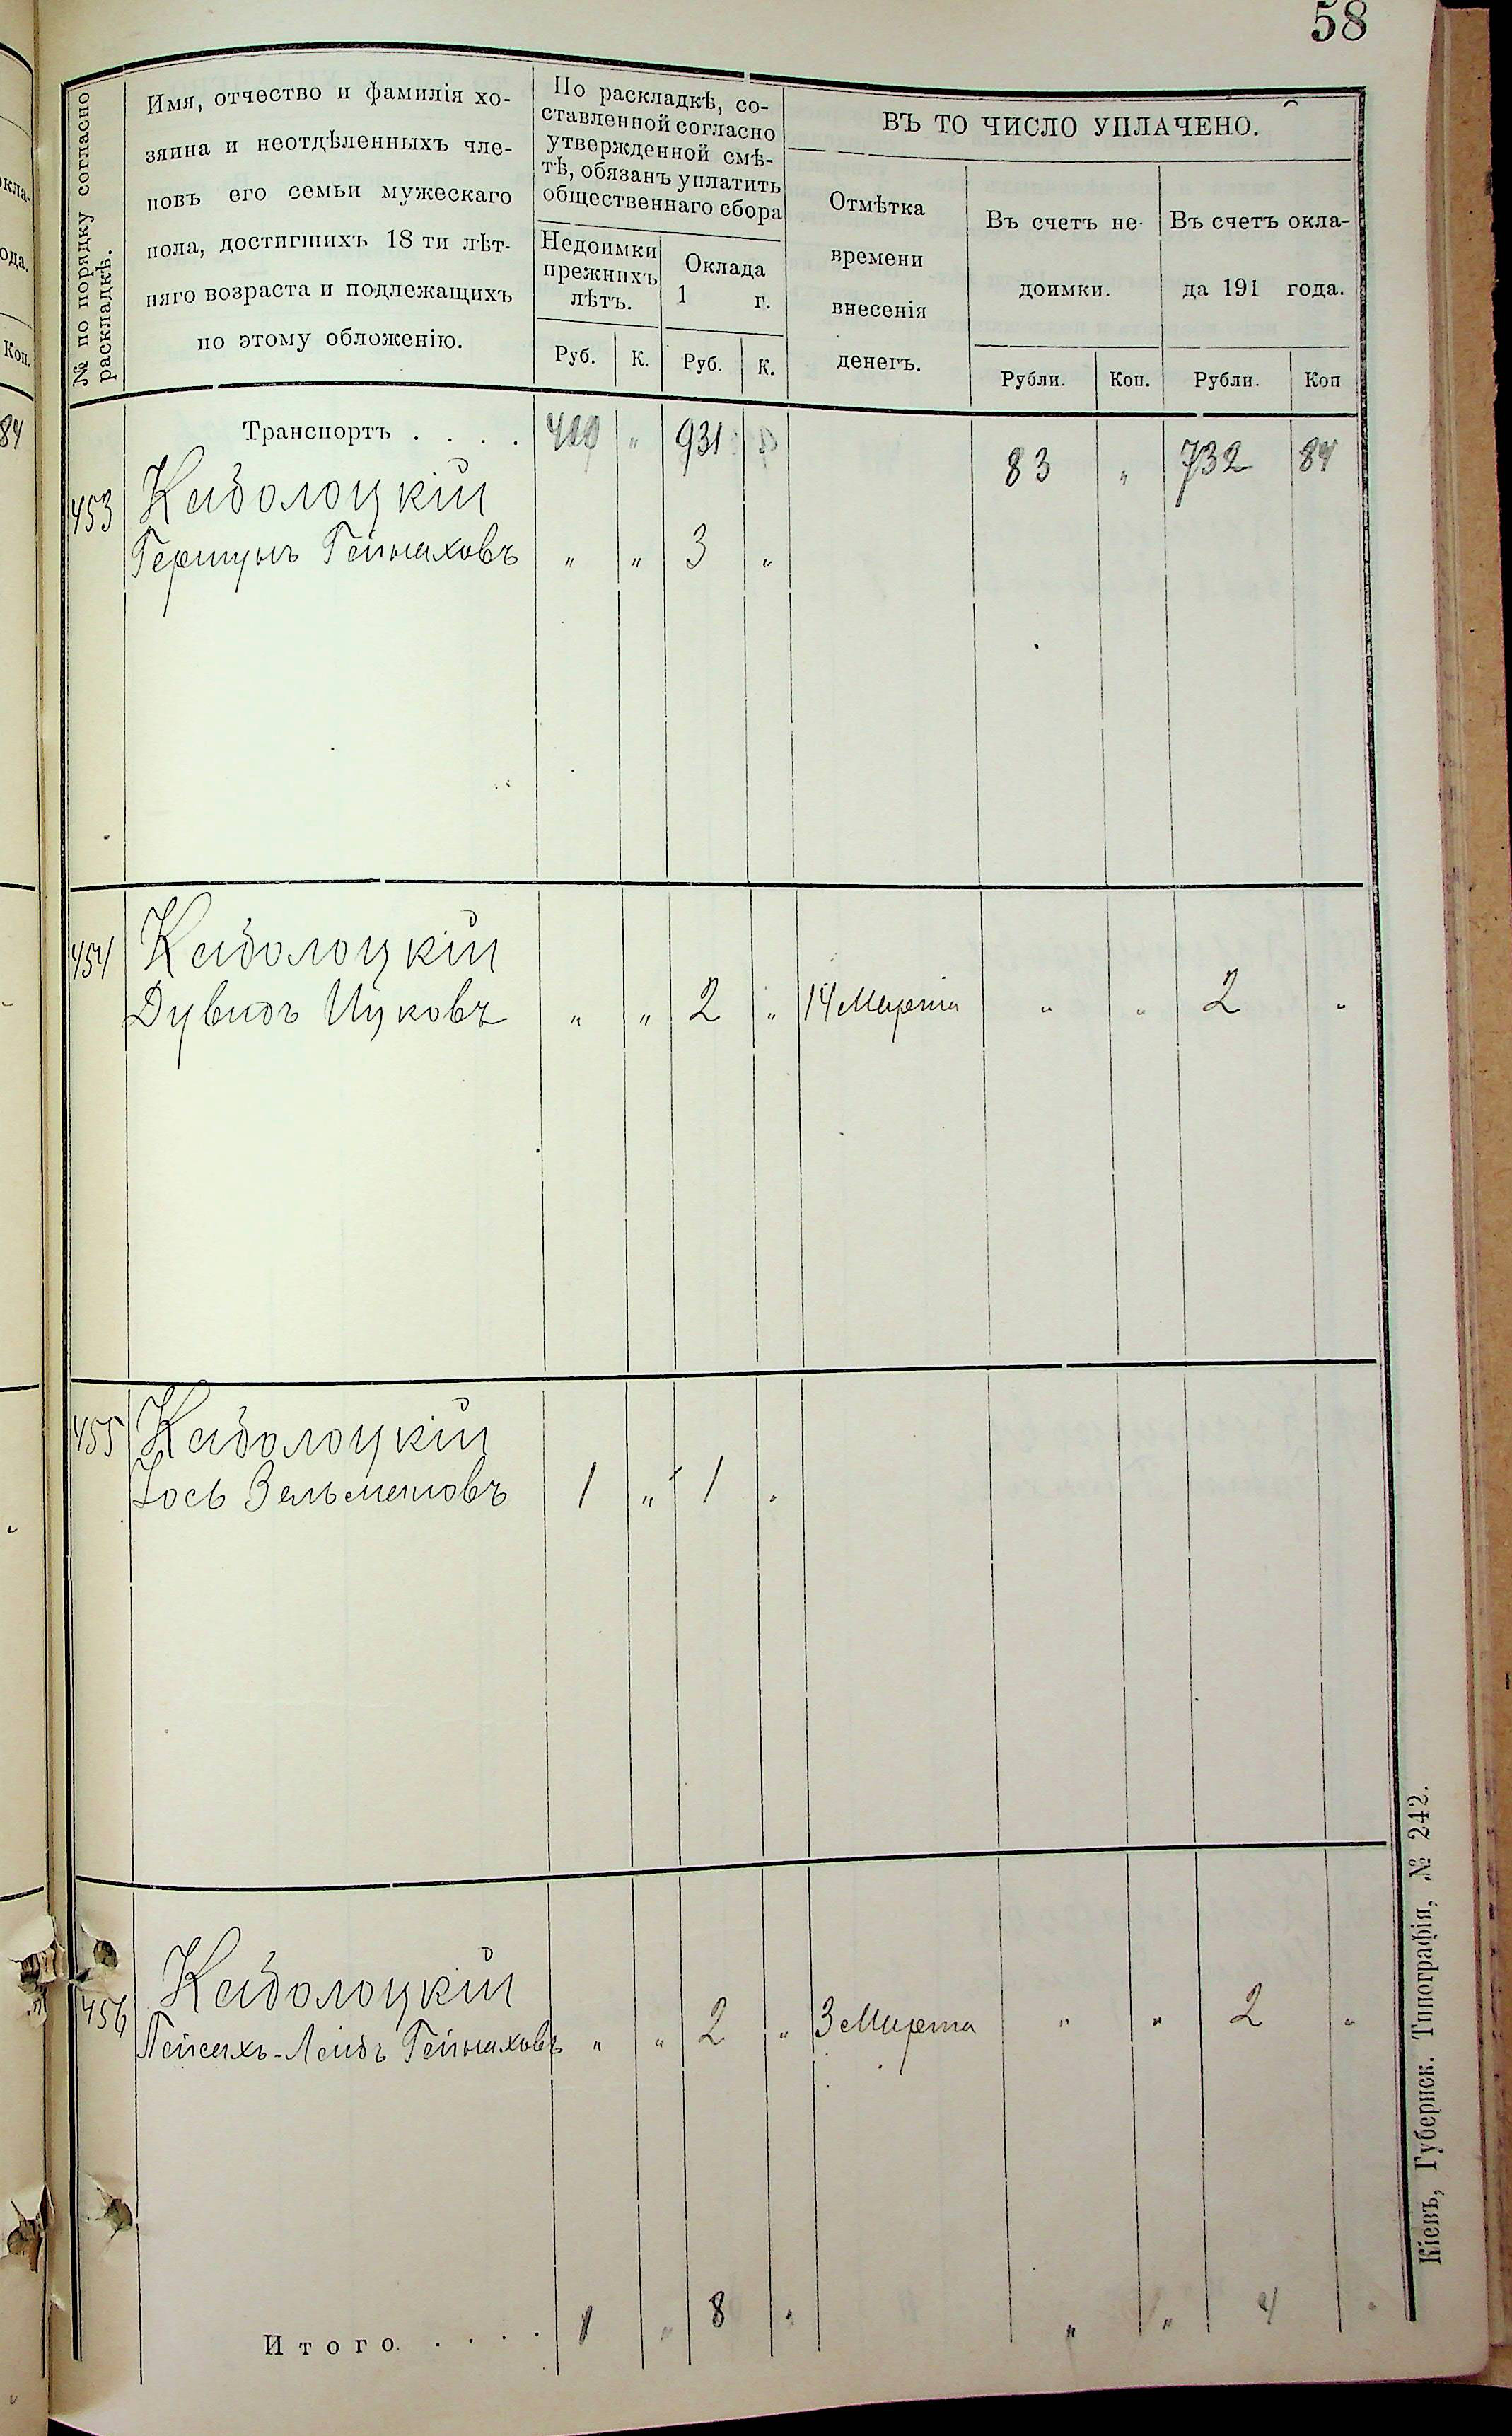 58
№ по порядку согласно
раскладкѣ.
Имя, отчество и фамилія хо-
зяина и неотдѣленныхъ чле-
новъ его семьи мужескаго
пола, достигшихъ 18 ти лѣт-
няго возраста и подлежащихъ
по этому обложенію.
По раскладкѣ, со-
ставленной согласно
утвержденной смѣ-
тѣ, обязанъ уплатить
общественнаго сбора
Недоимки
прежнихъ
лѣтъ.
Оклада
1 г.
Руб. К. Руб. К.
ВЪ ТО ЧИСЛО УПЛАЧЕНО.
Отмѣтка
времени
внесенія
денегъ.
Въ счетъ не-
доимки.
Въ счетъ окла-
да 191 года.
Рубли. Коп. Рубли. Коп
Транспортъ . . . . „ 931 83 „ 732 84
453 Кадолоцкій
Гершунъ Гейнаховъ „ „ 3 „
454 Кадолоцкій
Дувидъ Ицковъ „ „ 2 „ 14 Марта „ „ 2 „
455 Кадолоцкій
Іось Зельмановъ 1 „ 1 „
456 Кадолоцкій
Пейсахъ-Лейбъ Гейнаховъ „ „ 2 „ 3 Марта „ „ 2 „
Итого . . . . 1 „ 8 „ „ „ 4 „
Кіевъ, Губернск. Типографія, № 242.
окла-
ода.
Коп.
84